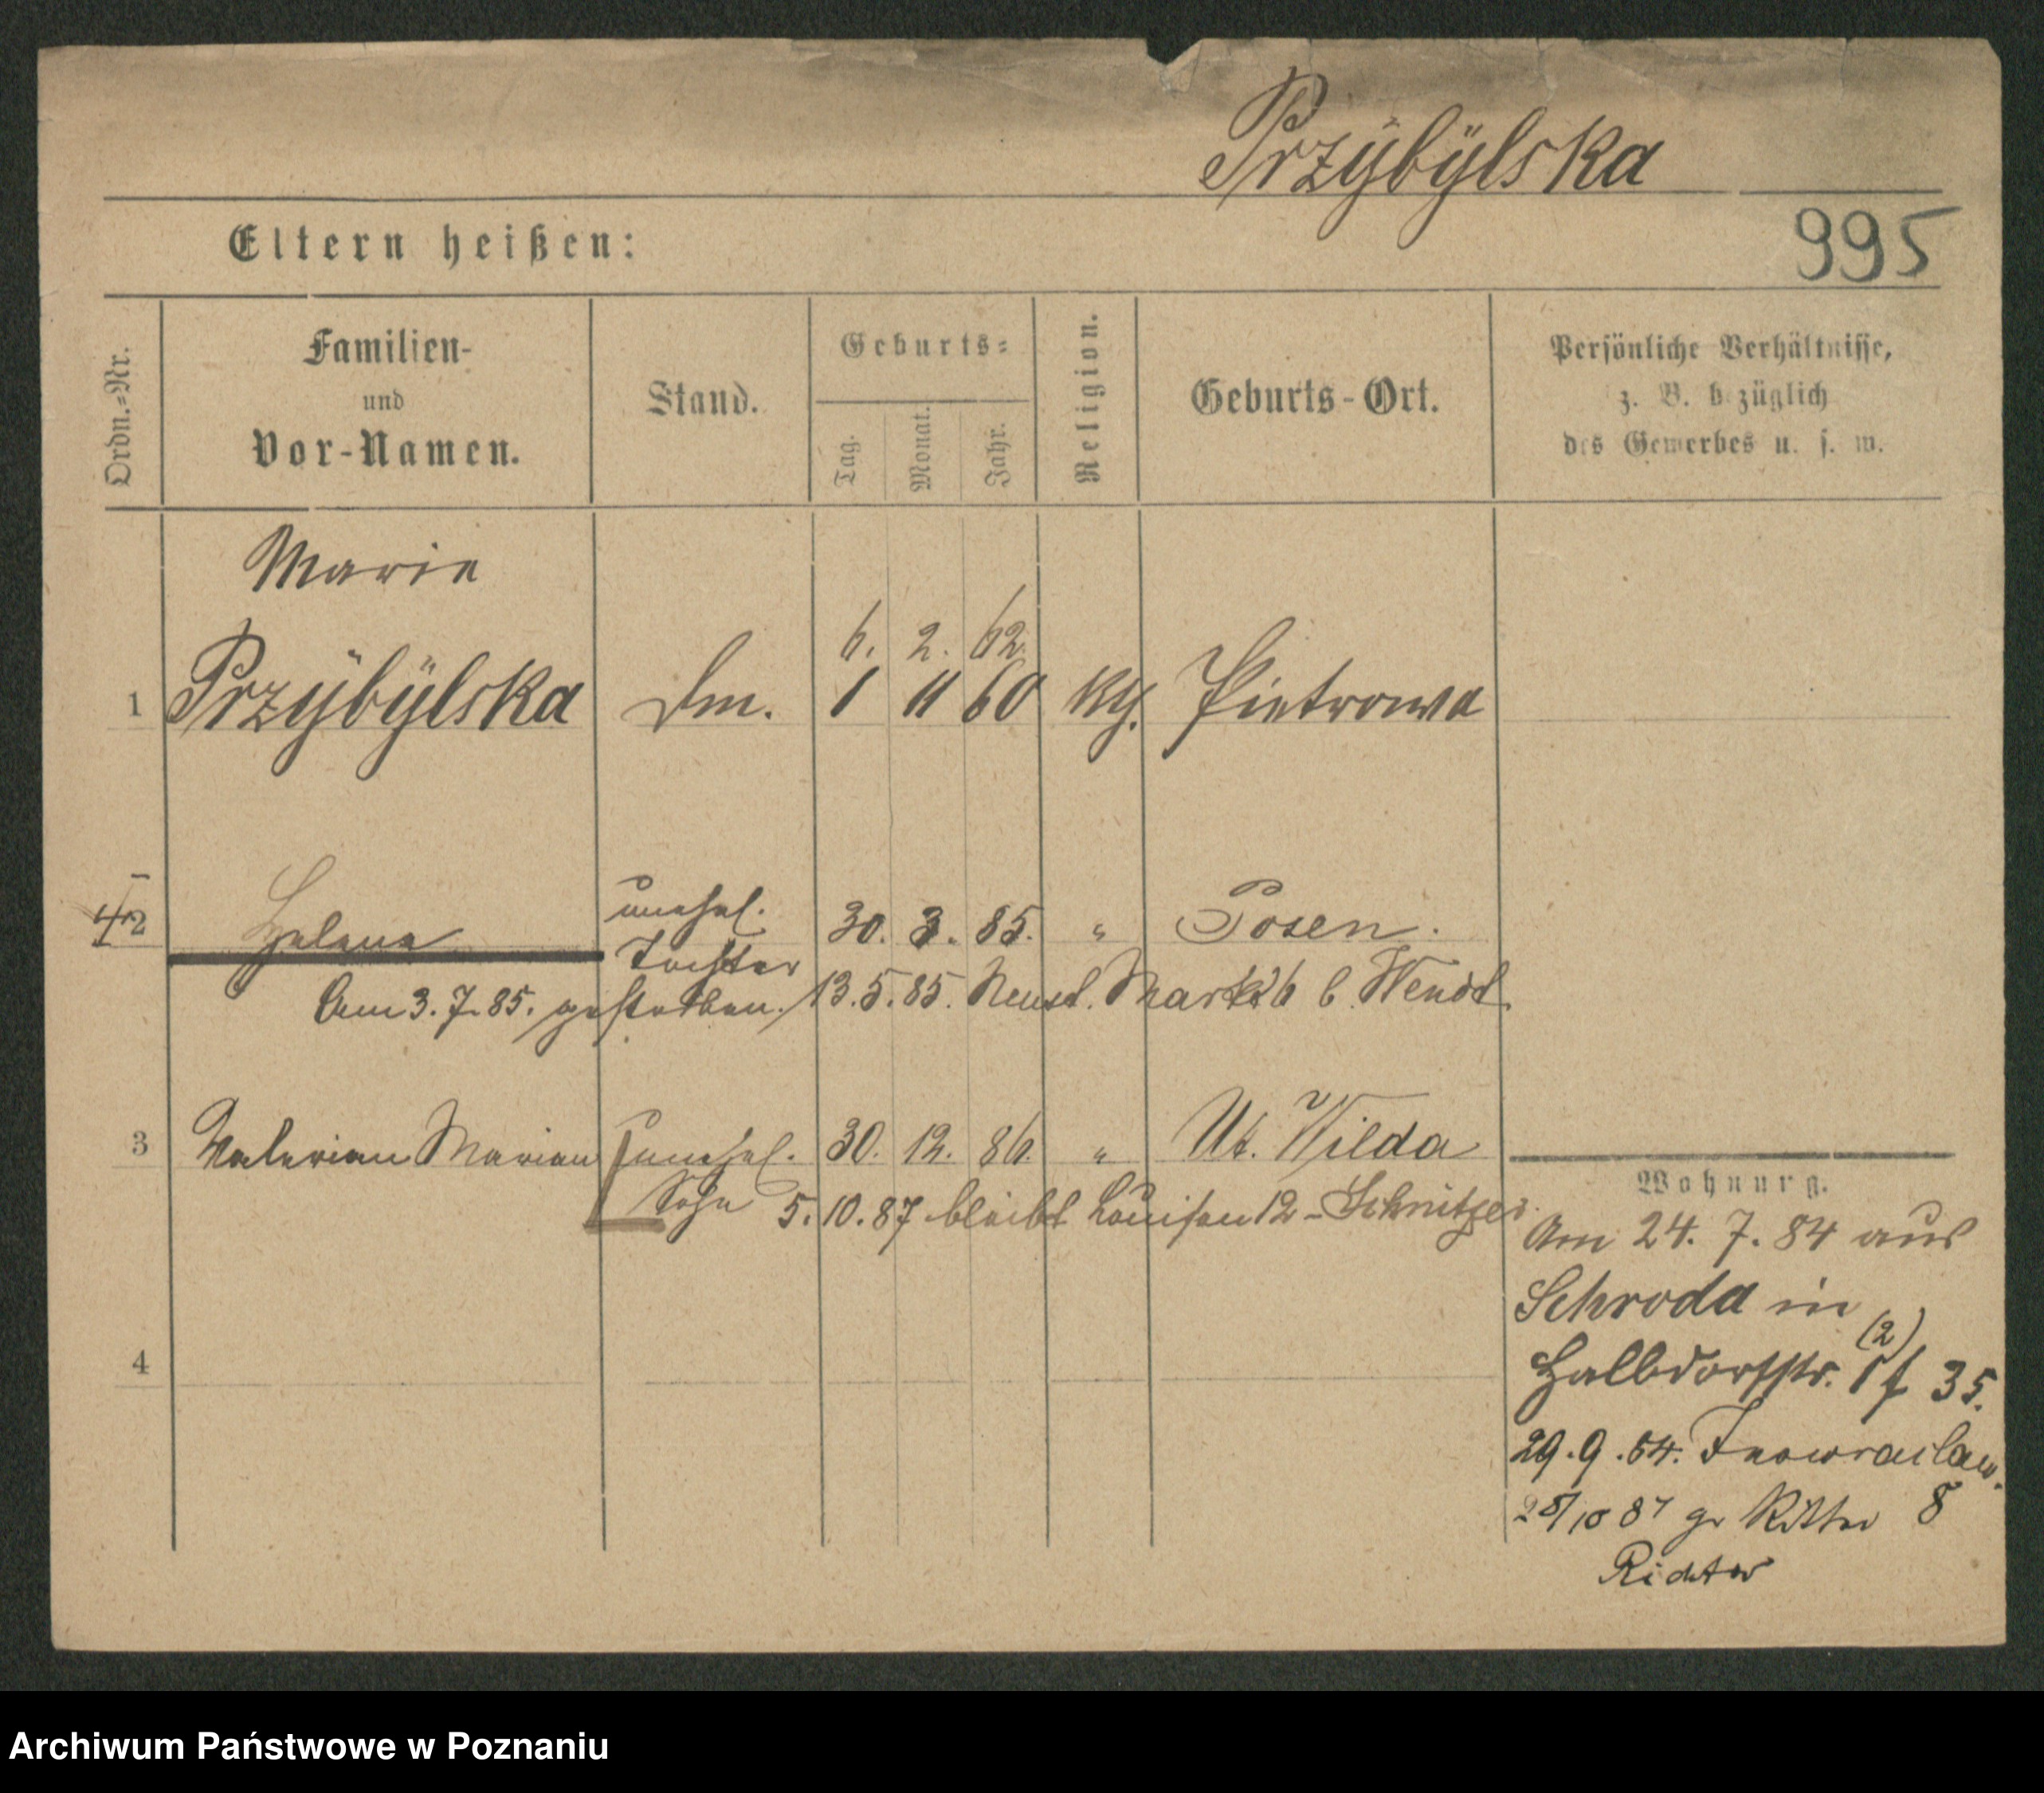 Przÿbÿlska
Eltern heißen:
995
Ordn.=Nr.
Familien-
und
Vor-Namen.
Stand.
Geburts=
Tag.
Monat.
Jahr.
Religion.
Geburts-Ort.
Persönliche Verhältnisse,
z. B. bezüglich
des Gewerbes u. s. w.
Marie
6. 2. 62.
1 Przÿbÿlska Dm. 1 11 60 kth. Pietrowo
2 Helena unehel. 30. 3. 85. " Posen.
Tochter
Am 3. 7. 85. gestorben. 13. 5. 85. Neust. Markt 6 b. Wendt.
3 Valerian Marian unehel. 30. 12. 86. " Ut. Wilda
Sohn 5. 10. 87 bleibt Louisen 12 - Schnitzer.
4
Wohnung.
Am 24. 7. 84 aus
Schroda in
(2)
Halbdorfstr. 35.
29. 9. 84. Inowraclaw.
25/10 87 gr Ritter 8
Richter
Archiwum Państwowe w Poznaniu